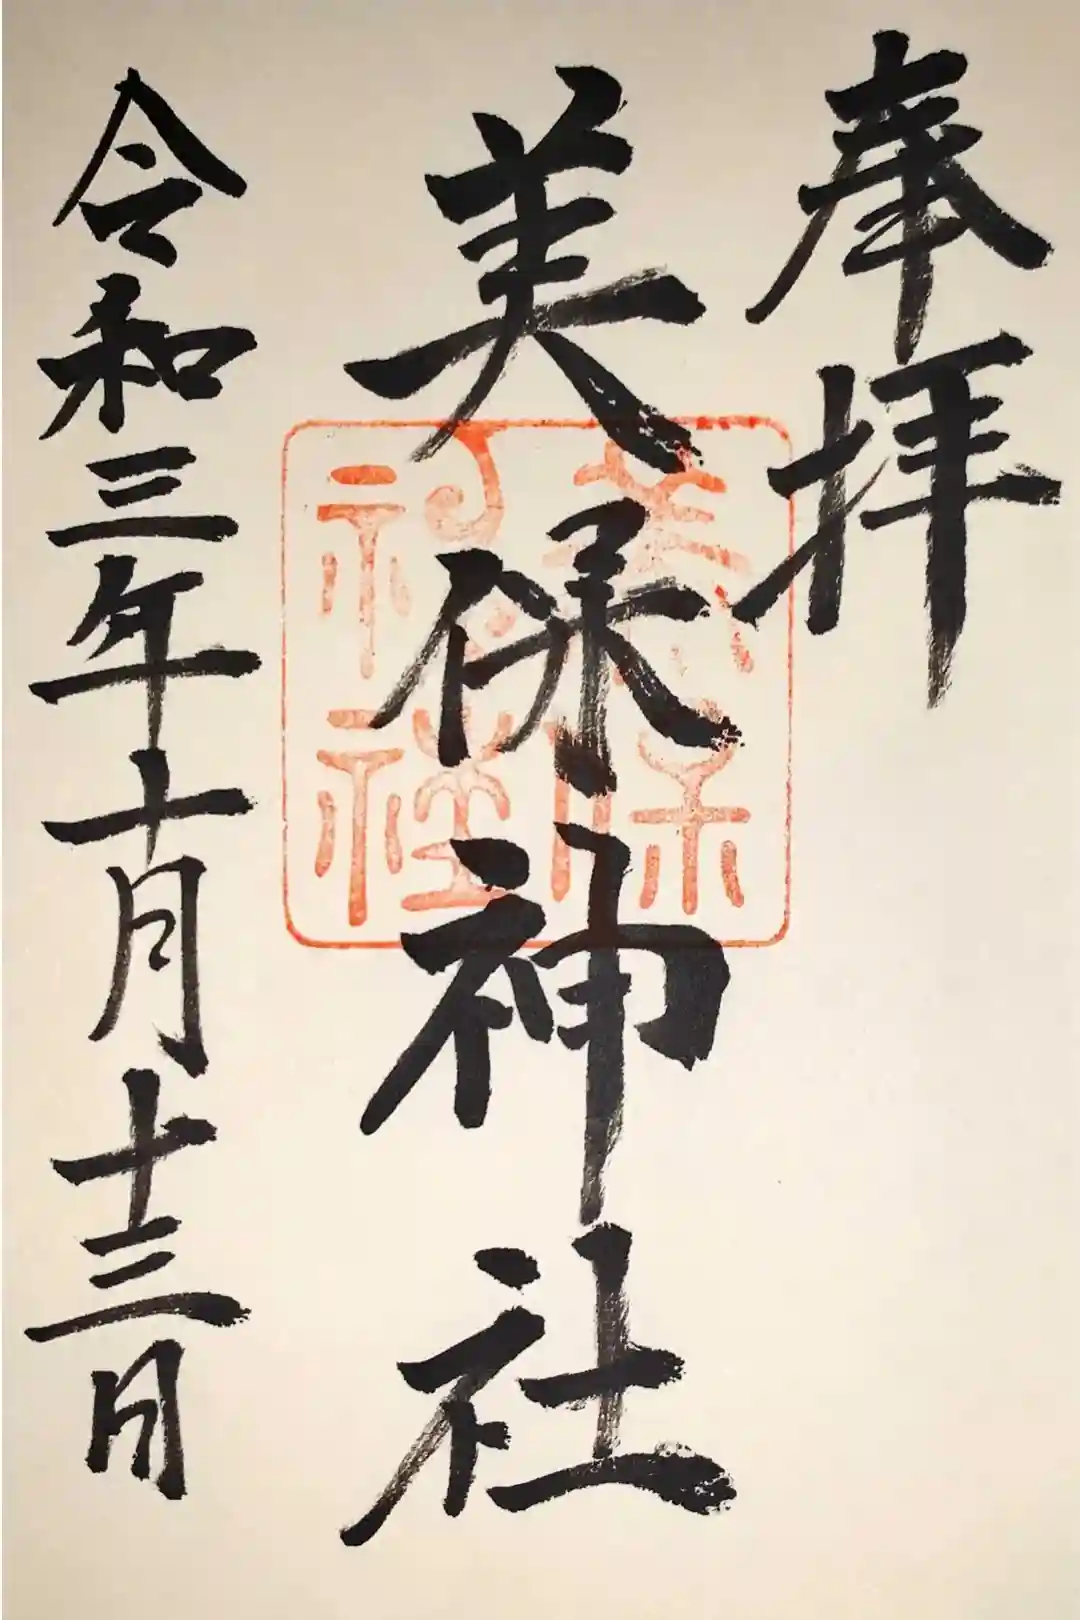 奉拝
美保神社
美保
神社
令和三年十月十三日